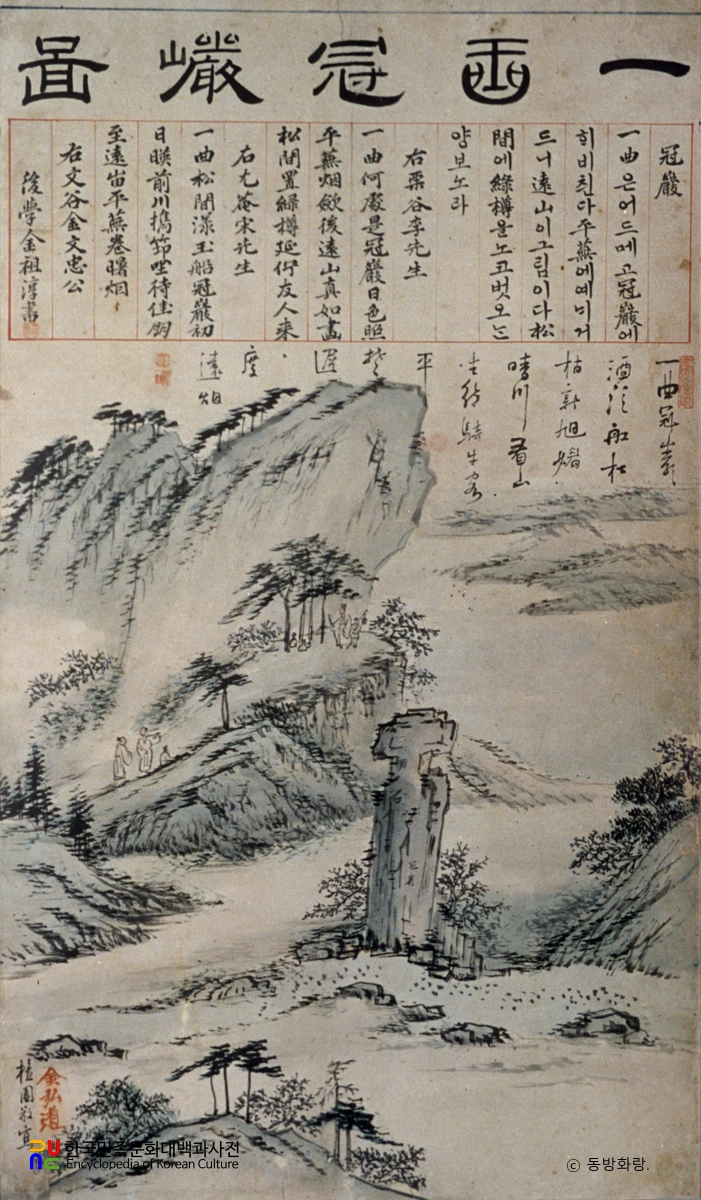 一曲冠巖圖
冠巖
一曲은어드메고冠巖에
희비친다平蕪에거
드니遠山이그림이다松
間에綠樽을노코벗오는
양보노라
右栗谷李先生
一曲何處是冠巖日色照
平蕪烟斂後遠山真如畵
松間置綠樽延佇友人來
右尤菴宋先生
一曲松間漾玉船冠巖初
日暎前川携筇坐待佳朋
至遠岫平蕪卷曙烟
右文谷金文忠公
後學金祖淳書
一曲冠巖
松
新旭
晴川看山
坐待騎牛客
平
楚
度
遠烟
金弘道
檀園敬寫
한국민족문화대백과사전
Encyclopedia of Korean Culture
ⓒ 동방화랑.